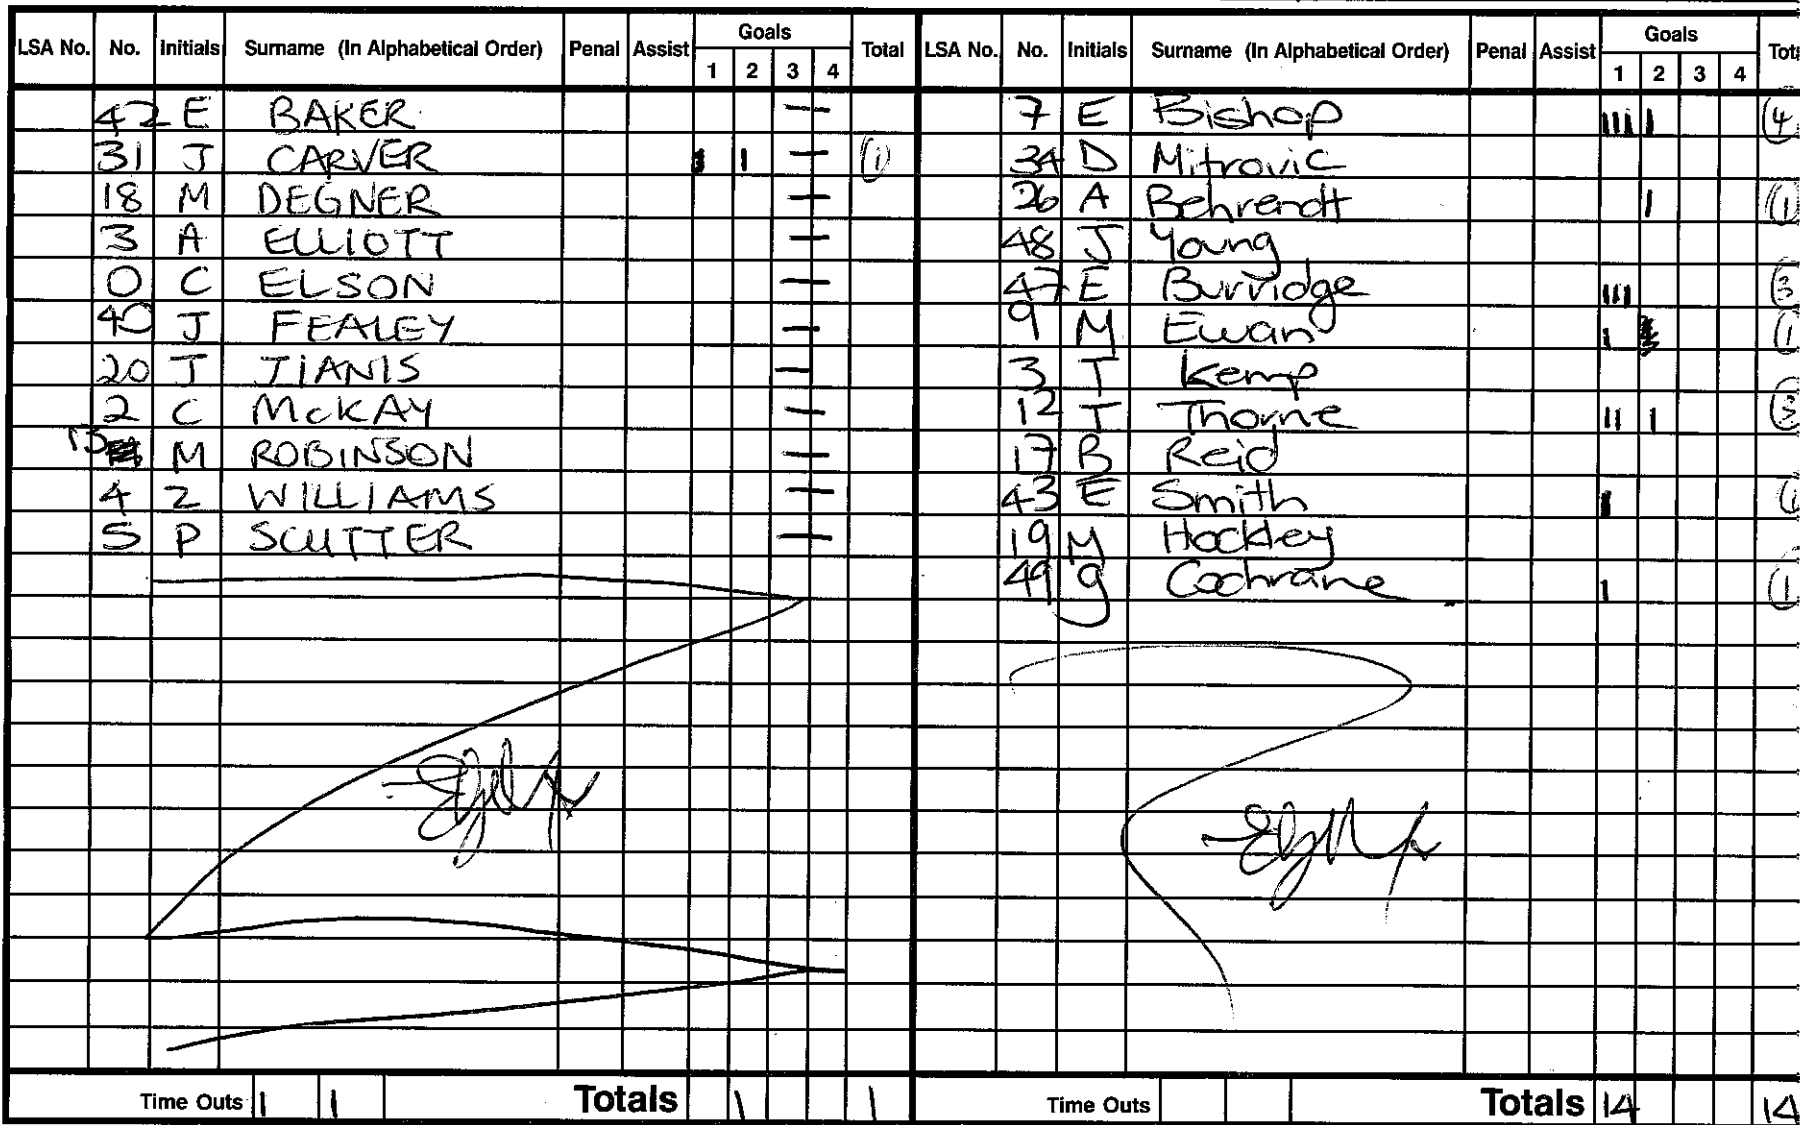 LSA No. No. Initials Surname (In Alphabetical Order) Penal Assist Goals 1 2 3 4 Total
42 E BAKER —
31 J CARVER 1 — (1)
18 M DEGNER —
3 A ELLIOTT —
0 C ELSON —
40 J FEALEY —
20 J JIANIS —
2 C McKAY —
13 M ROBINSON —
4 Z WILLIAMS —
5 P SCUTTER —
Time Outs 1 1 Totals 1 1
LSA No. No. Initials Surname (In Alphabetical Order) Penal Assist Goals 1 2 3 4 Tot
7 E Bishop III I (4)
34 D Mitrovic
26 A Behrendt I (1)
48 J Young
47 E Burridge III (3)
9 M Ewan I (1)
3 T Kemp
12 T Thorne II I (3)
17 B Reid
43 E Smith I (1
19 M Hockley
49 g Cochrane I (1)
Time Outs Totals 14 14